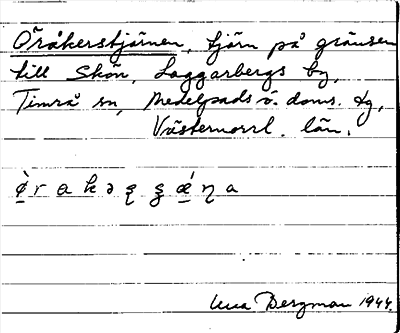 Öråkerstjärnen, tjärn på gränsen
till Skön, Laggarbergs by,
Timrå sn, Medelpads ö. doms. dg,
Västernorrl. län.
Bergman 1944.